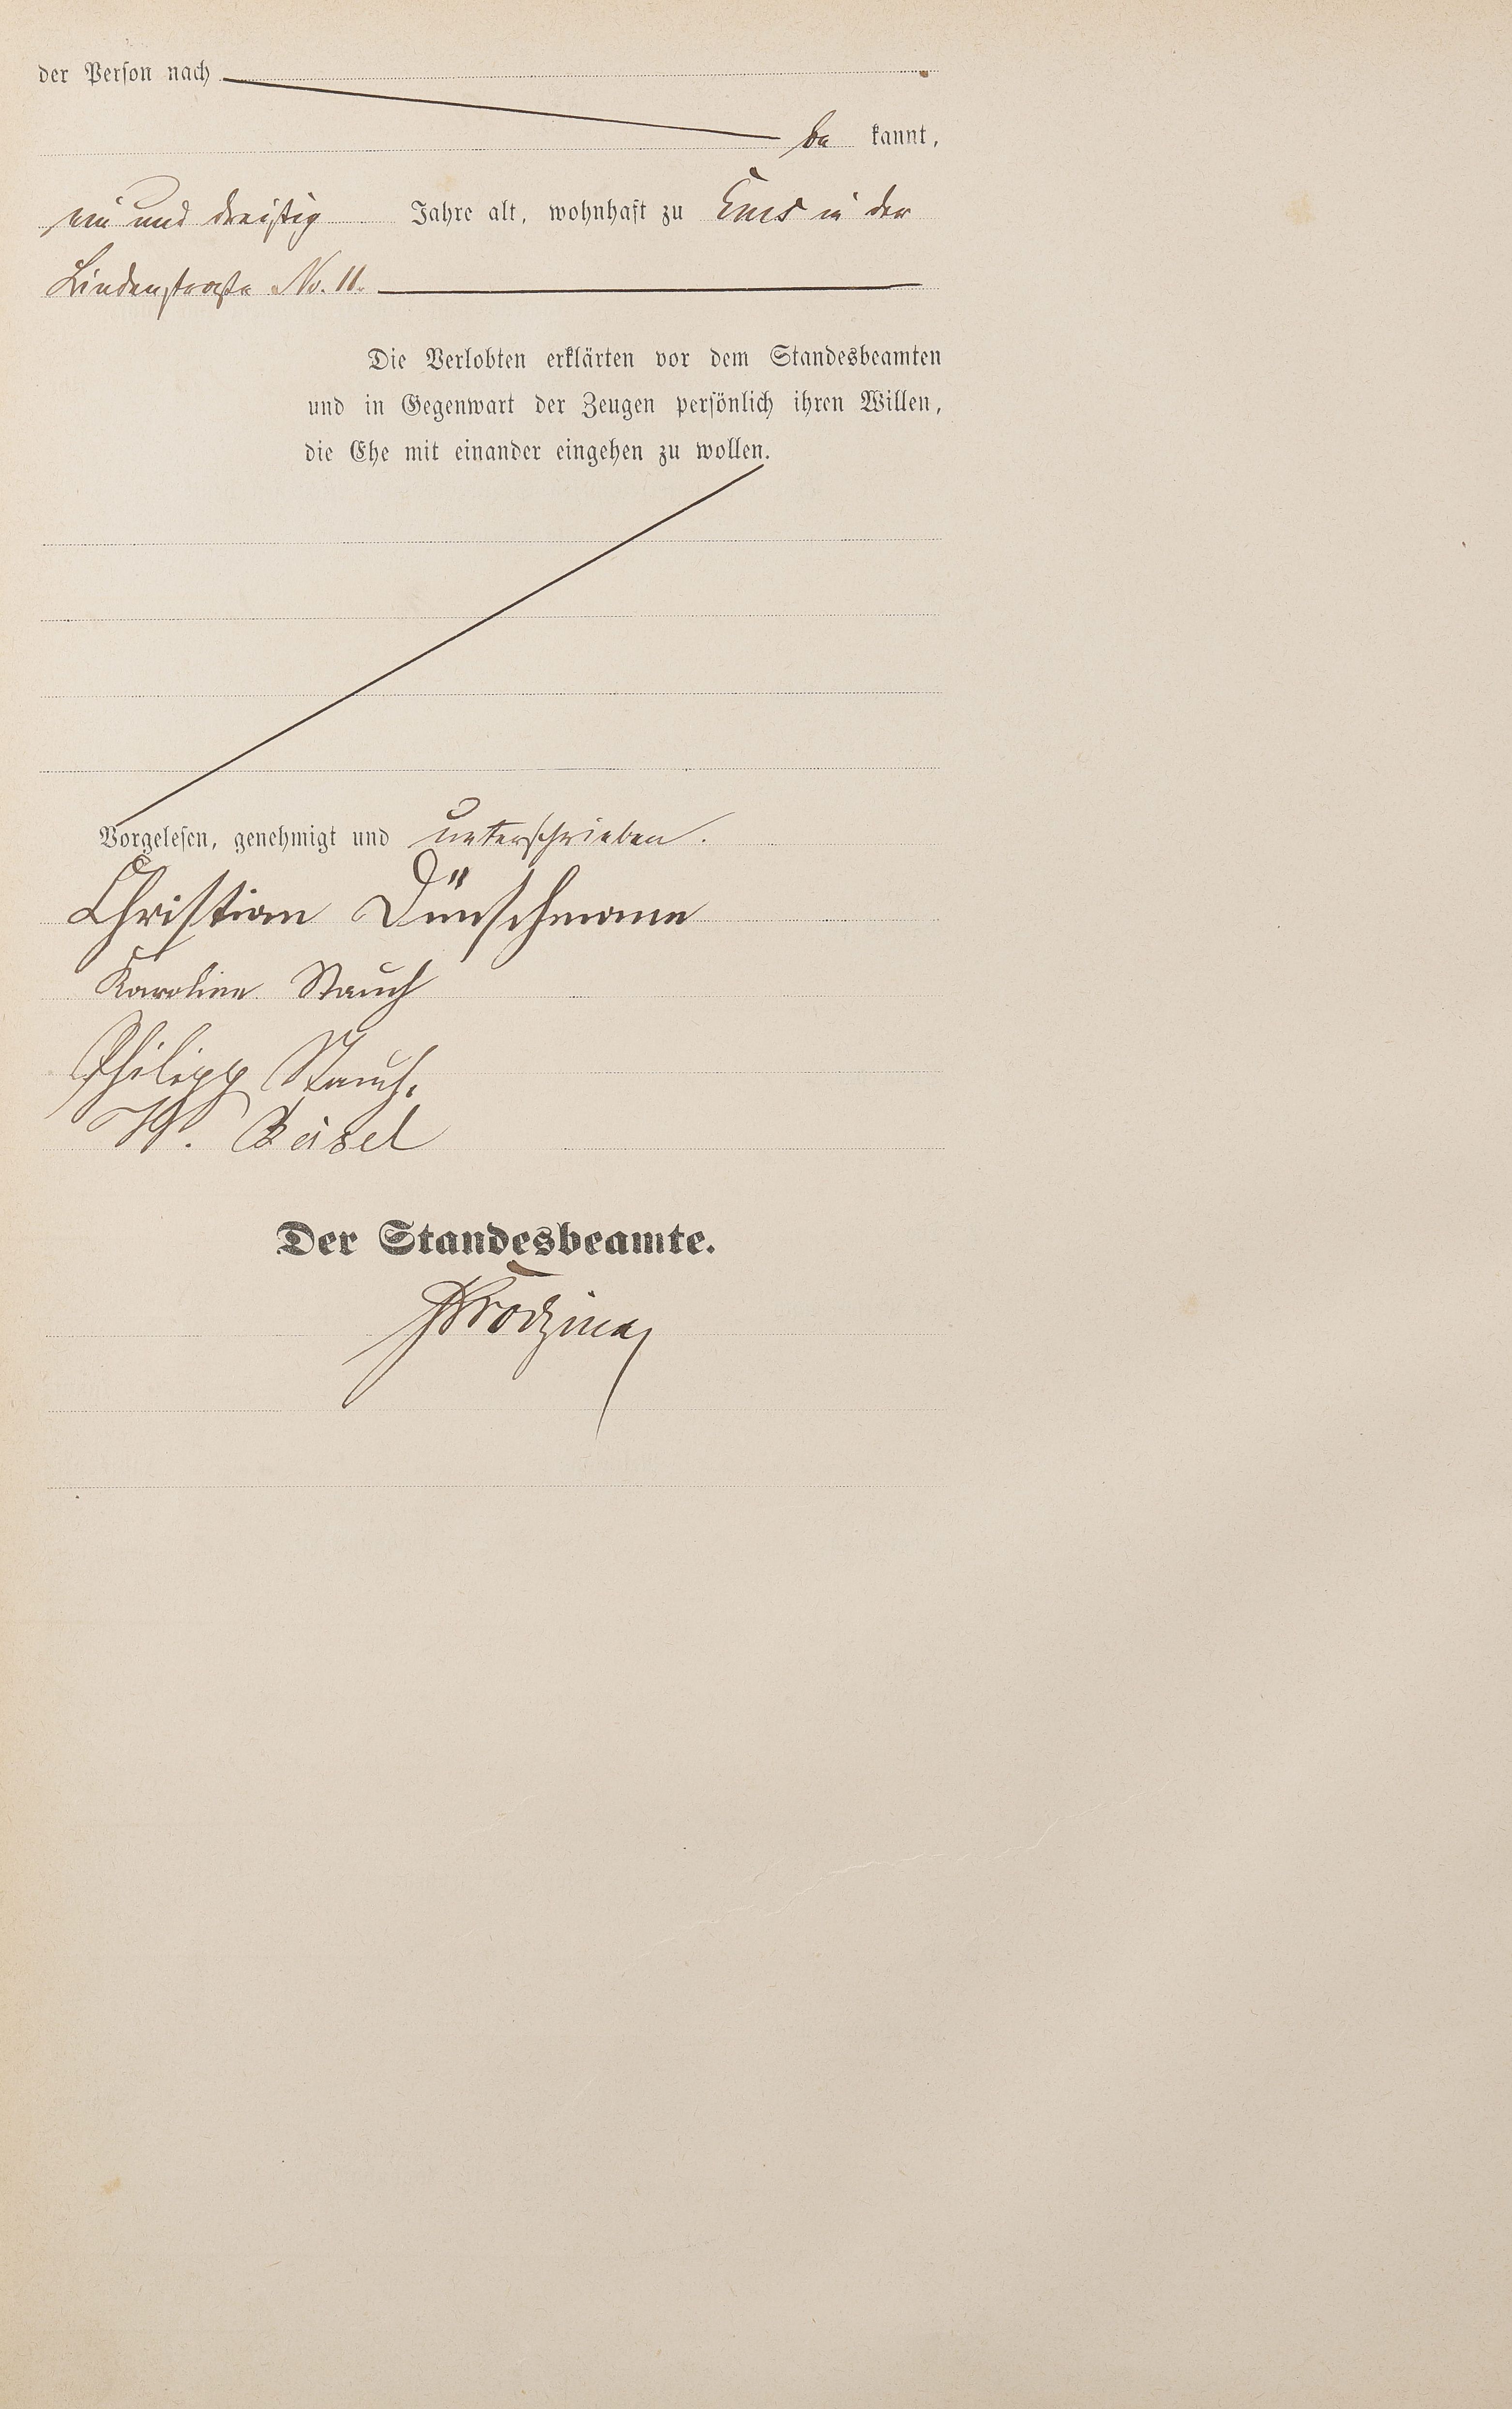 der Person nach
be kannt,
ein und dreißig Jahre alt, wohnhaft zu Ems in der
Lindenstraße No. 11.
Die Verlobten erklärten vor dem Standesbeamten
und in Gegenwart der Zeugen persönlich ihren Willen,
die Ehe mit einander eingehen zu wollen.
Vorgelesen, genehmigt und unterschrieben.
Christian Dünschmann
Karoline Stauch
Philipp Stauch.
W.
Der Standesbeamte.